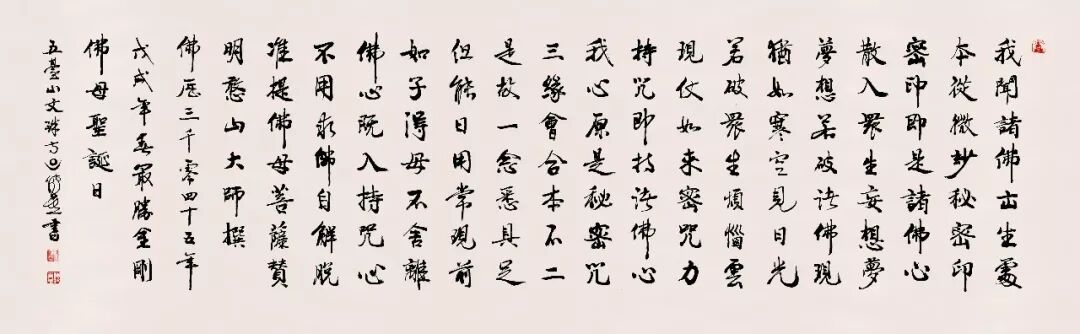 我聞諸佛出生處
本從微妙秘密印
密印即是諸佛心
散入眾生妄想夢
夢想若破諸佛現
猶如寒空見日光
若破眾生煩惱雲
現仗如來密咒力
持咒即持諸佛心
我心原是秘密咒
三緣會合本不二
是故一念悉具足
但能日用常現前
如子得母不舍離
佛心既入持咒心
不用求佛自解脫
准提佛母菩薩贊
明憨山大師撰
佛曆三千零四十五年
戊戌年春最勝金剛
佛母聖誕日
五臺山文殊書